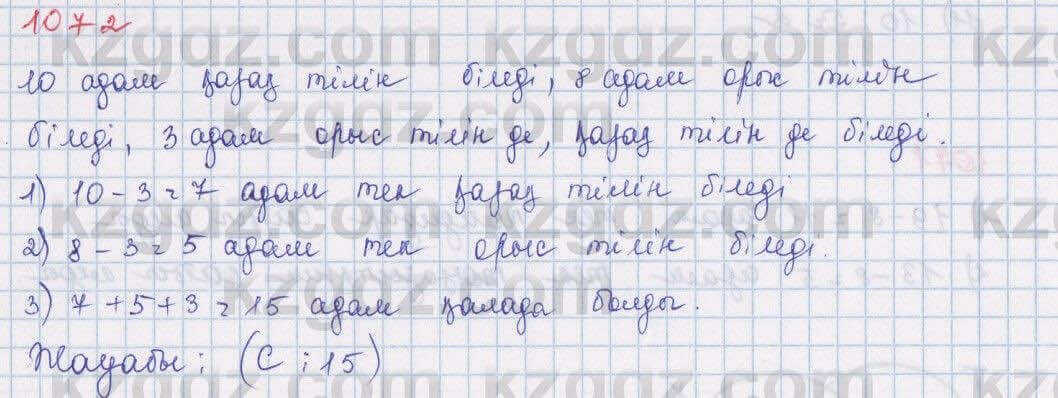 1072
10 адам қазақ тілін біледі, 8 адам орыс тілін
біледі, 3 адам орыс тілін де, қазақ тілін де біледі.
1) 10 - 3 = 7 адам тек қазақ тілін біледі
2) 8 - 3 = 5 адам тек орыс тілін біледі.
3) 7 + 5 + 3 = 15 адам қалада болды.
Жауабы: (C ; 15)
kzgdz.com